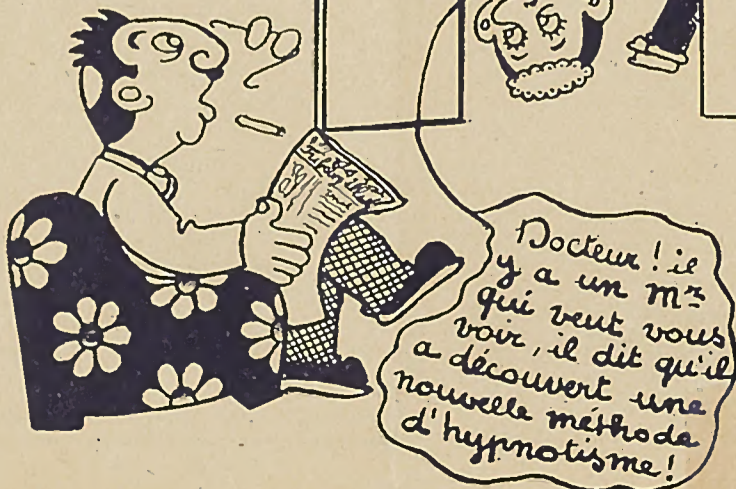 Docteur ! il
y a un Mr
qui veut vous
voir, il dit qu'il
a découvert une
nouvelle méthode
d'hypnotisme !